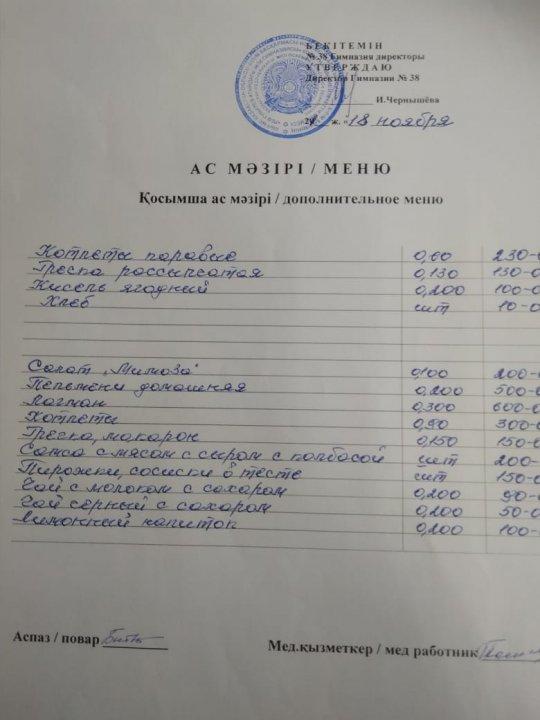 БЕКІТЕМІН
№ 38 Гимназия директоры
УТВЕРЖДАЮ
Директор Гимназии № 38
И.Чернышёва
ж. «18 ноября
АС МӘЗІРІ / МЕНЮ
Қосымша ас мәзірі / дополнительное меню
Котлеты паравые 0,60 230-0
Греспа россыпсатая 0,130 130-0
Кисель ягодный 0,200 100-0
Хлеб шт 10-0
Салат „Мимоза" 0,100 200-0
Пельмени домашняя 0,200 500-0
Лагман 0,300 600-0
Котлеты 0,90 300-0
Греспа, макарон 0,150 150-0
Самса с мясом с сыром с колбасой шт 200-
Пирожки, сосиски в тесте шт 150-0
Чай с молоком с сахаром 0,200 90-0
Чай чёрный с сахаром 0,200 50-0
Лимонный напиток 0,200 100-0
Аспаз / повар
Мед.қызметкер / мед работник